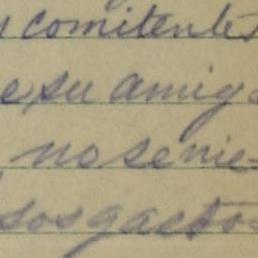 comitente
e su amig
no se nie-
sos gastos